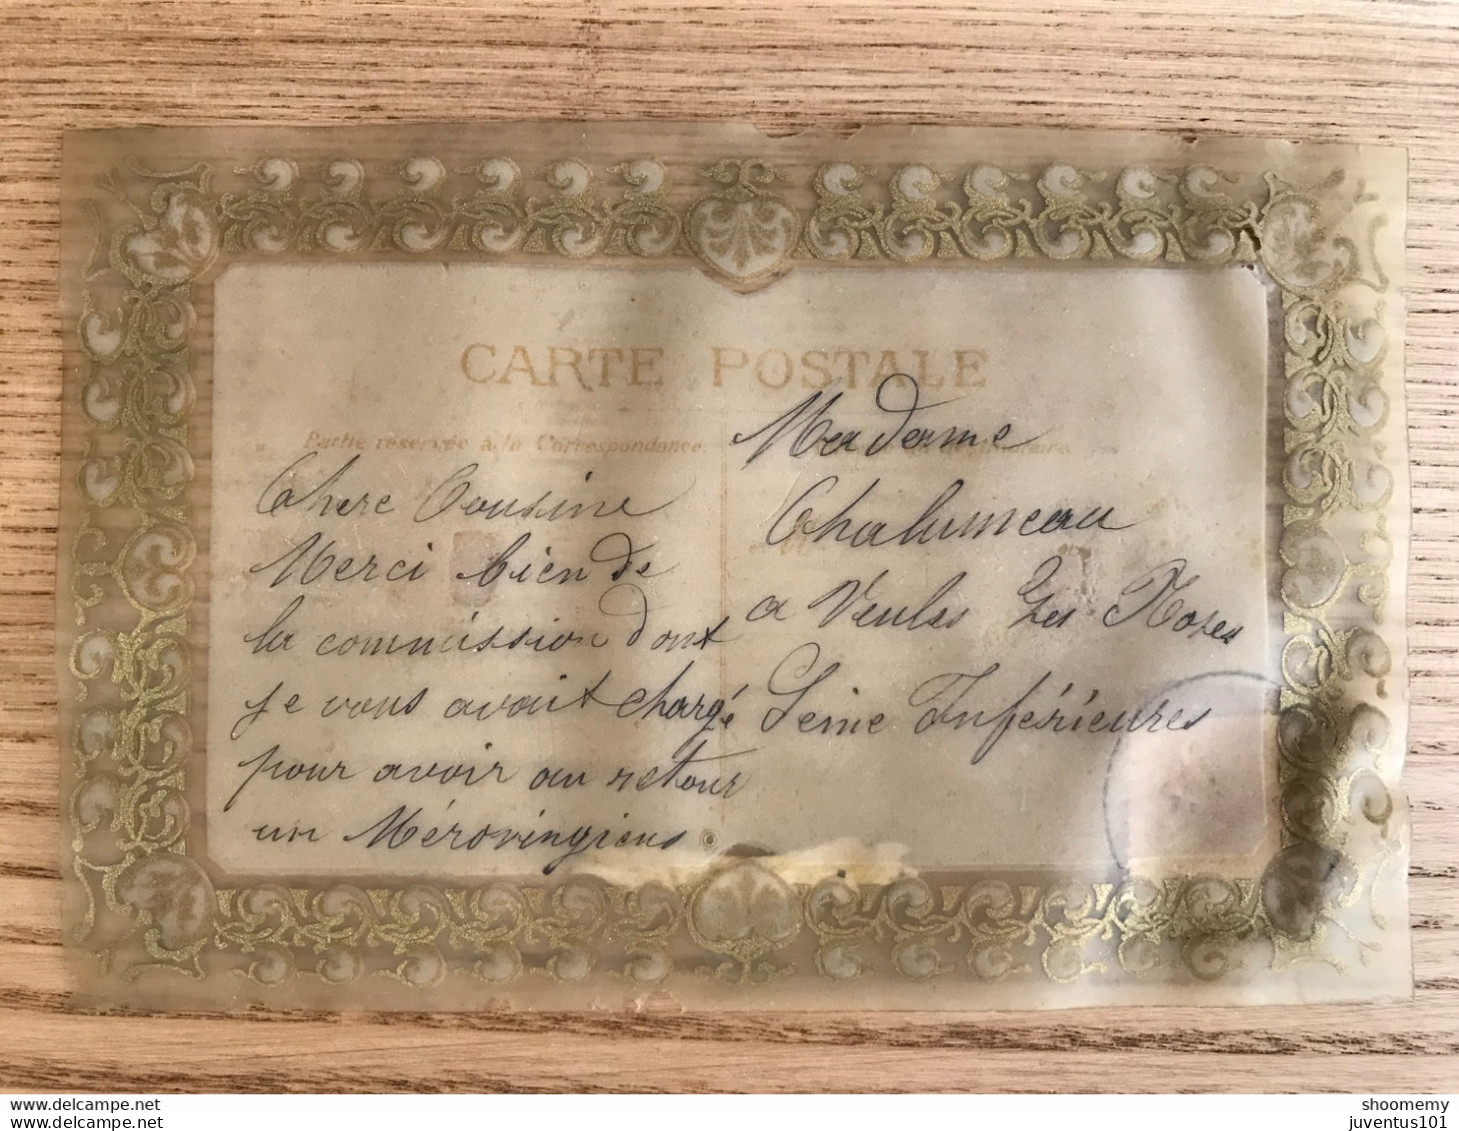 CARTE POSTALE
Partie réservée à la Correspondance
Chere Cousine
Merci bien de
la commission dont
je vous avait chargé
pour avoir au retour
un Mérovingiens
Madame
Chalumeau
a Veules Les Roses
Seine Inférieures
www.delcampe.net
www.delcampe.net
shoomemy
juventus101